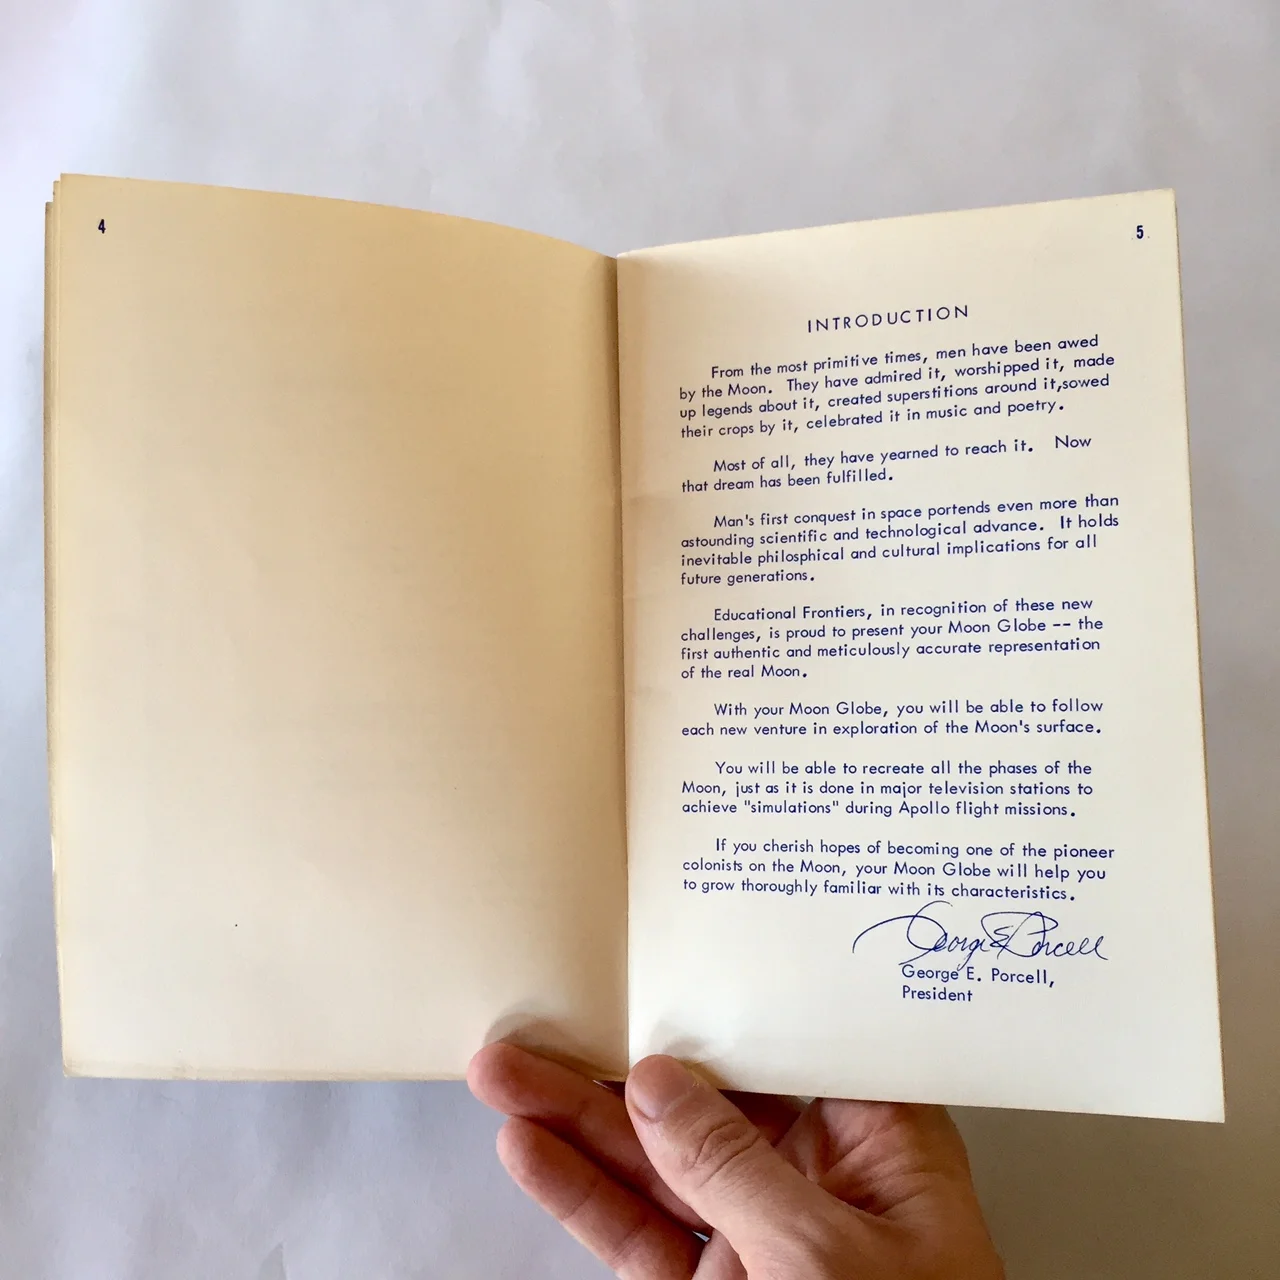 4
5
INTRODUCTION
From the most primitive times, men have been awed
by the Moon. They have admired it, worshipped it, made
up legends about it, created superstitions around it,sowed
their crops by it, celebrated it in music and poetry.
Most of all, they have yearned to reach it. Now
that dream has been fulfilled.
Man's first conquest in space portends even more than
astounding scientific and technological advance. It holds
inevitable philosphical and cultural implications for all
future generations.
Educational Frontiers, in recognition of these new
challenges, is proud to present your Moon Globe -- the
first authentic and meticulously accurate representation
of the real Moon.
With your Moon Globe, you will be able to follow
each new venture in exploration of the Moon's surface.
You will be able to recreate all the phases of the
Moon, just as it is done in major television stations to
achieve "simulations" during Apollo flight missions.
If you cherish hopes of becoming one of the pioneer
colonists on the Moon, your Moon Globe will help you
to grow thoroughly familiar with its characteristics.
George E Porcell
George E. Porcell,
President